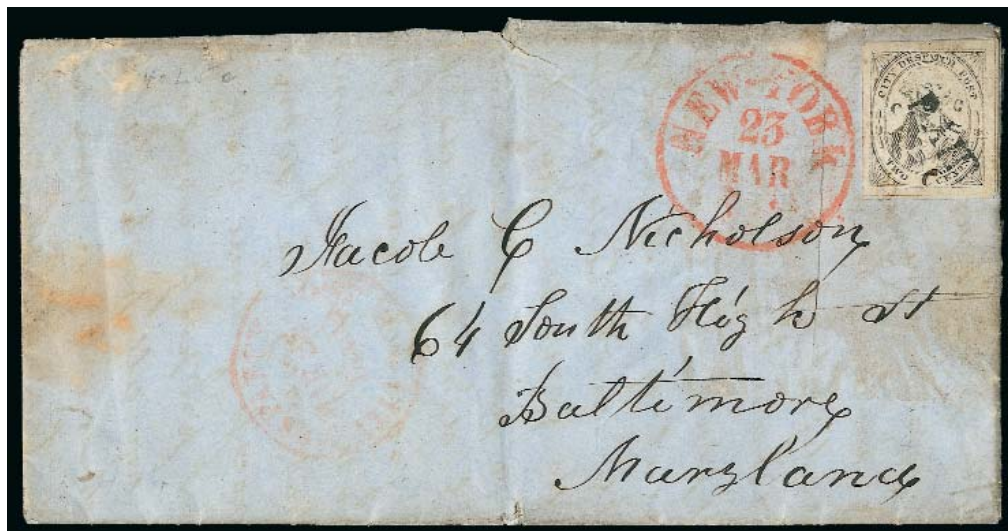 NEW-YORK
23
MAR
CITY DESPATCH POST
TWO
CENTS
PAID
Jacob C Nicholson
64 South High St
Baltimore
Maryland